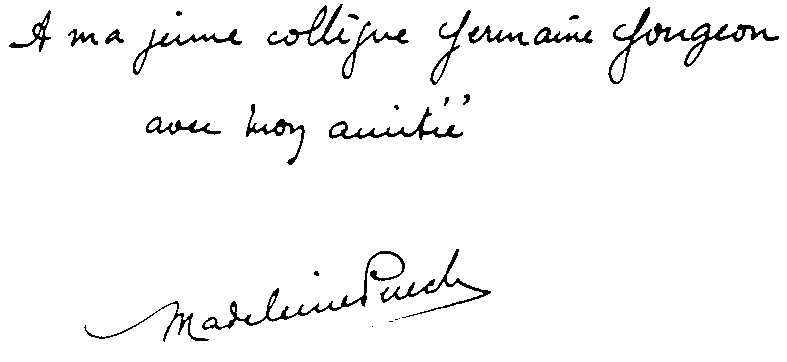 A ma jeune collègue Germaine Gougeon
avec mon amitié
Madeleine Puech